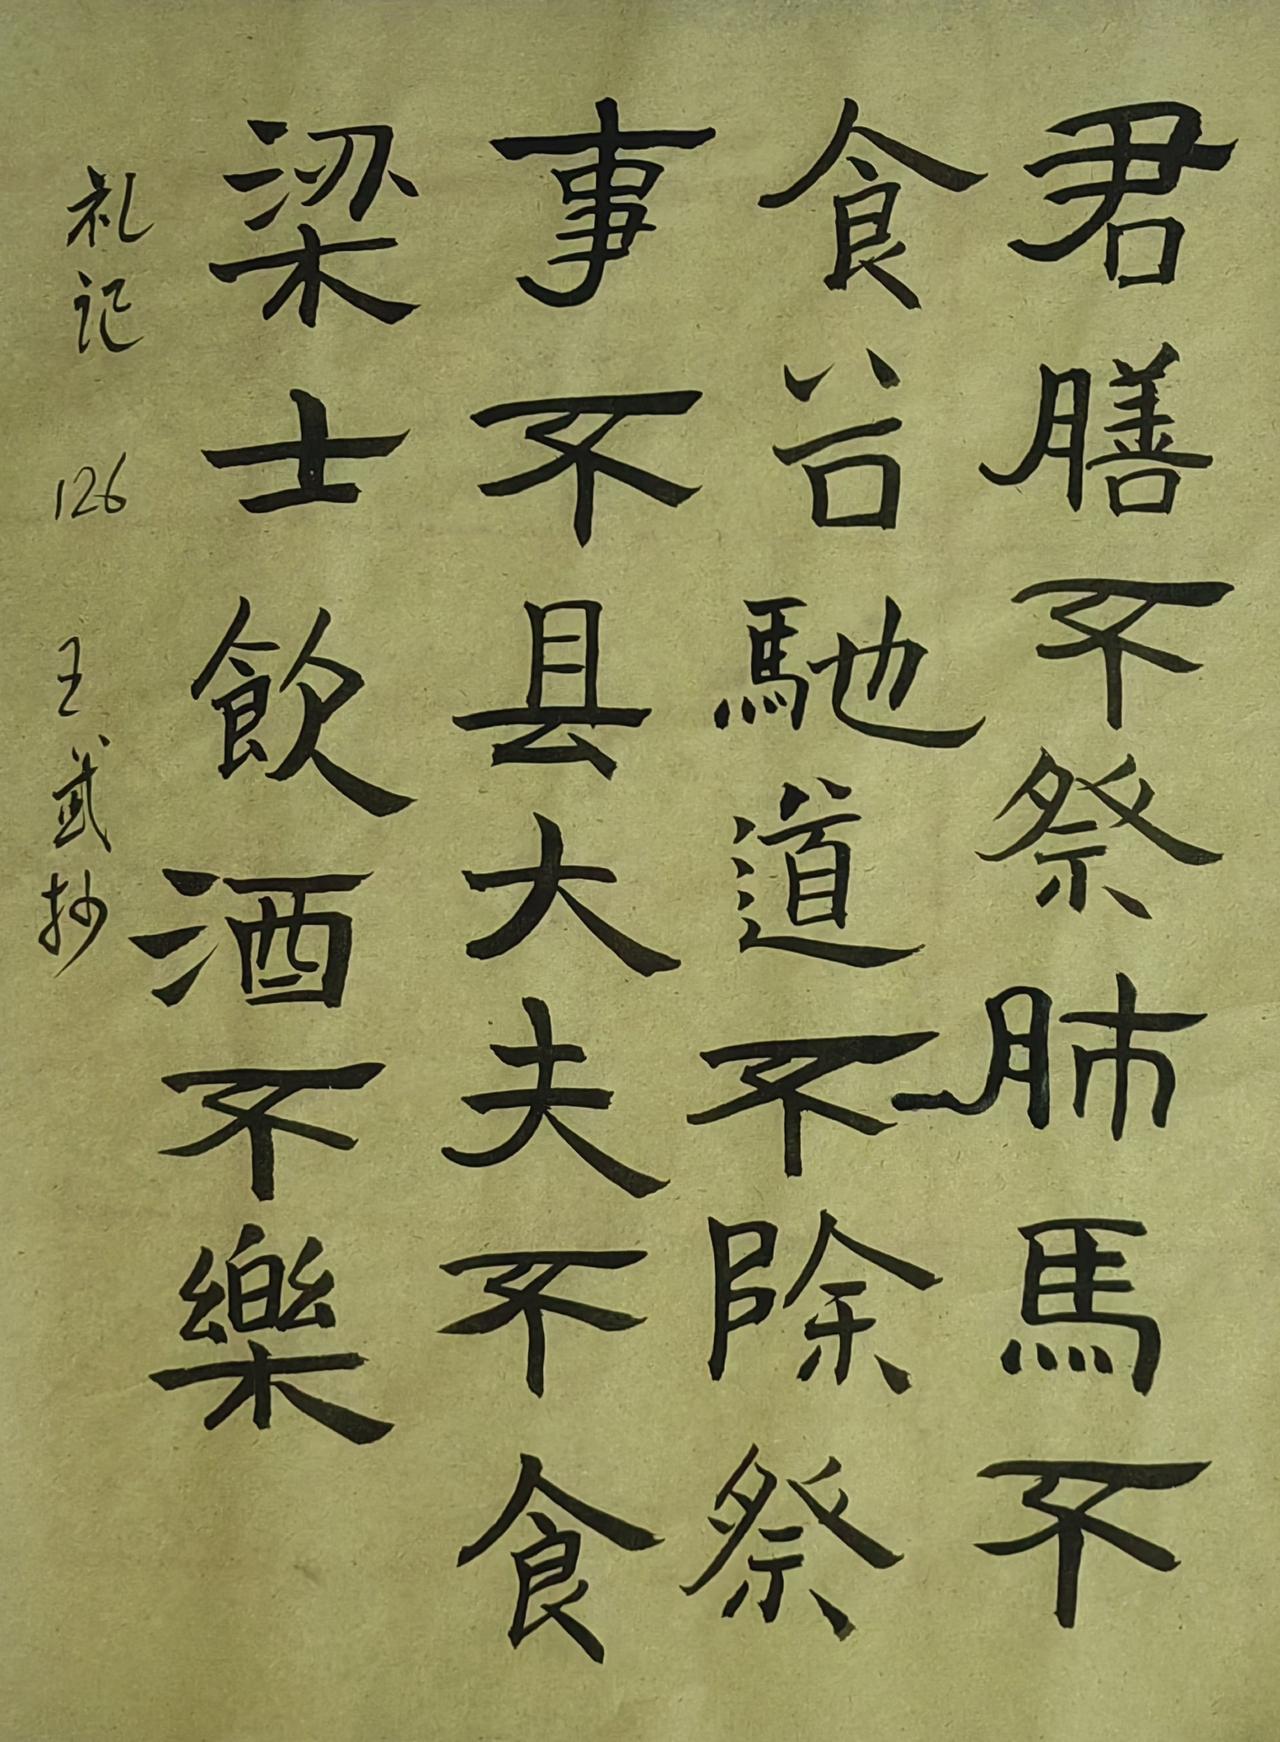 君膳不祭肺馬不
食谷馳道不除祭
事不县大夫不食
梁士飲酒不樂
礼记 126 王 抄